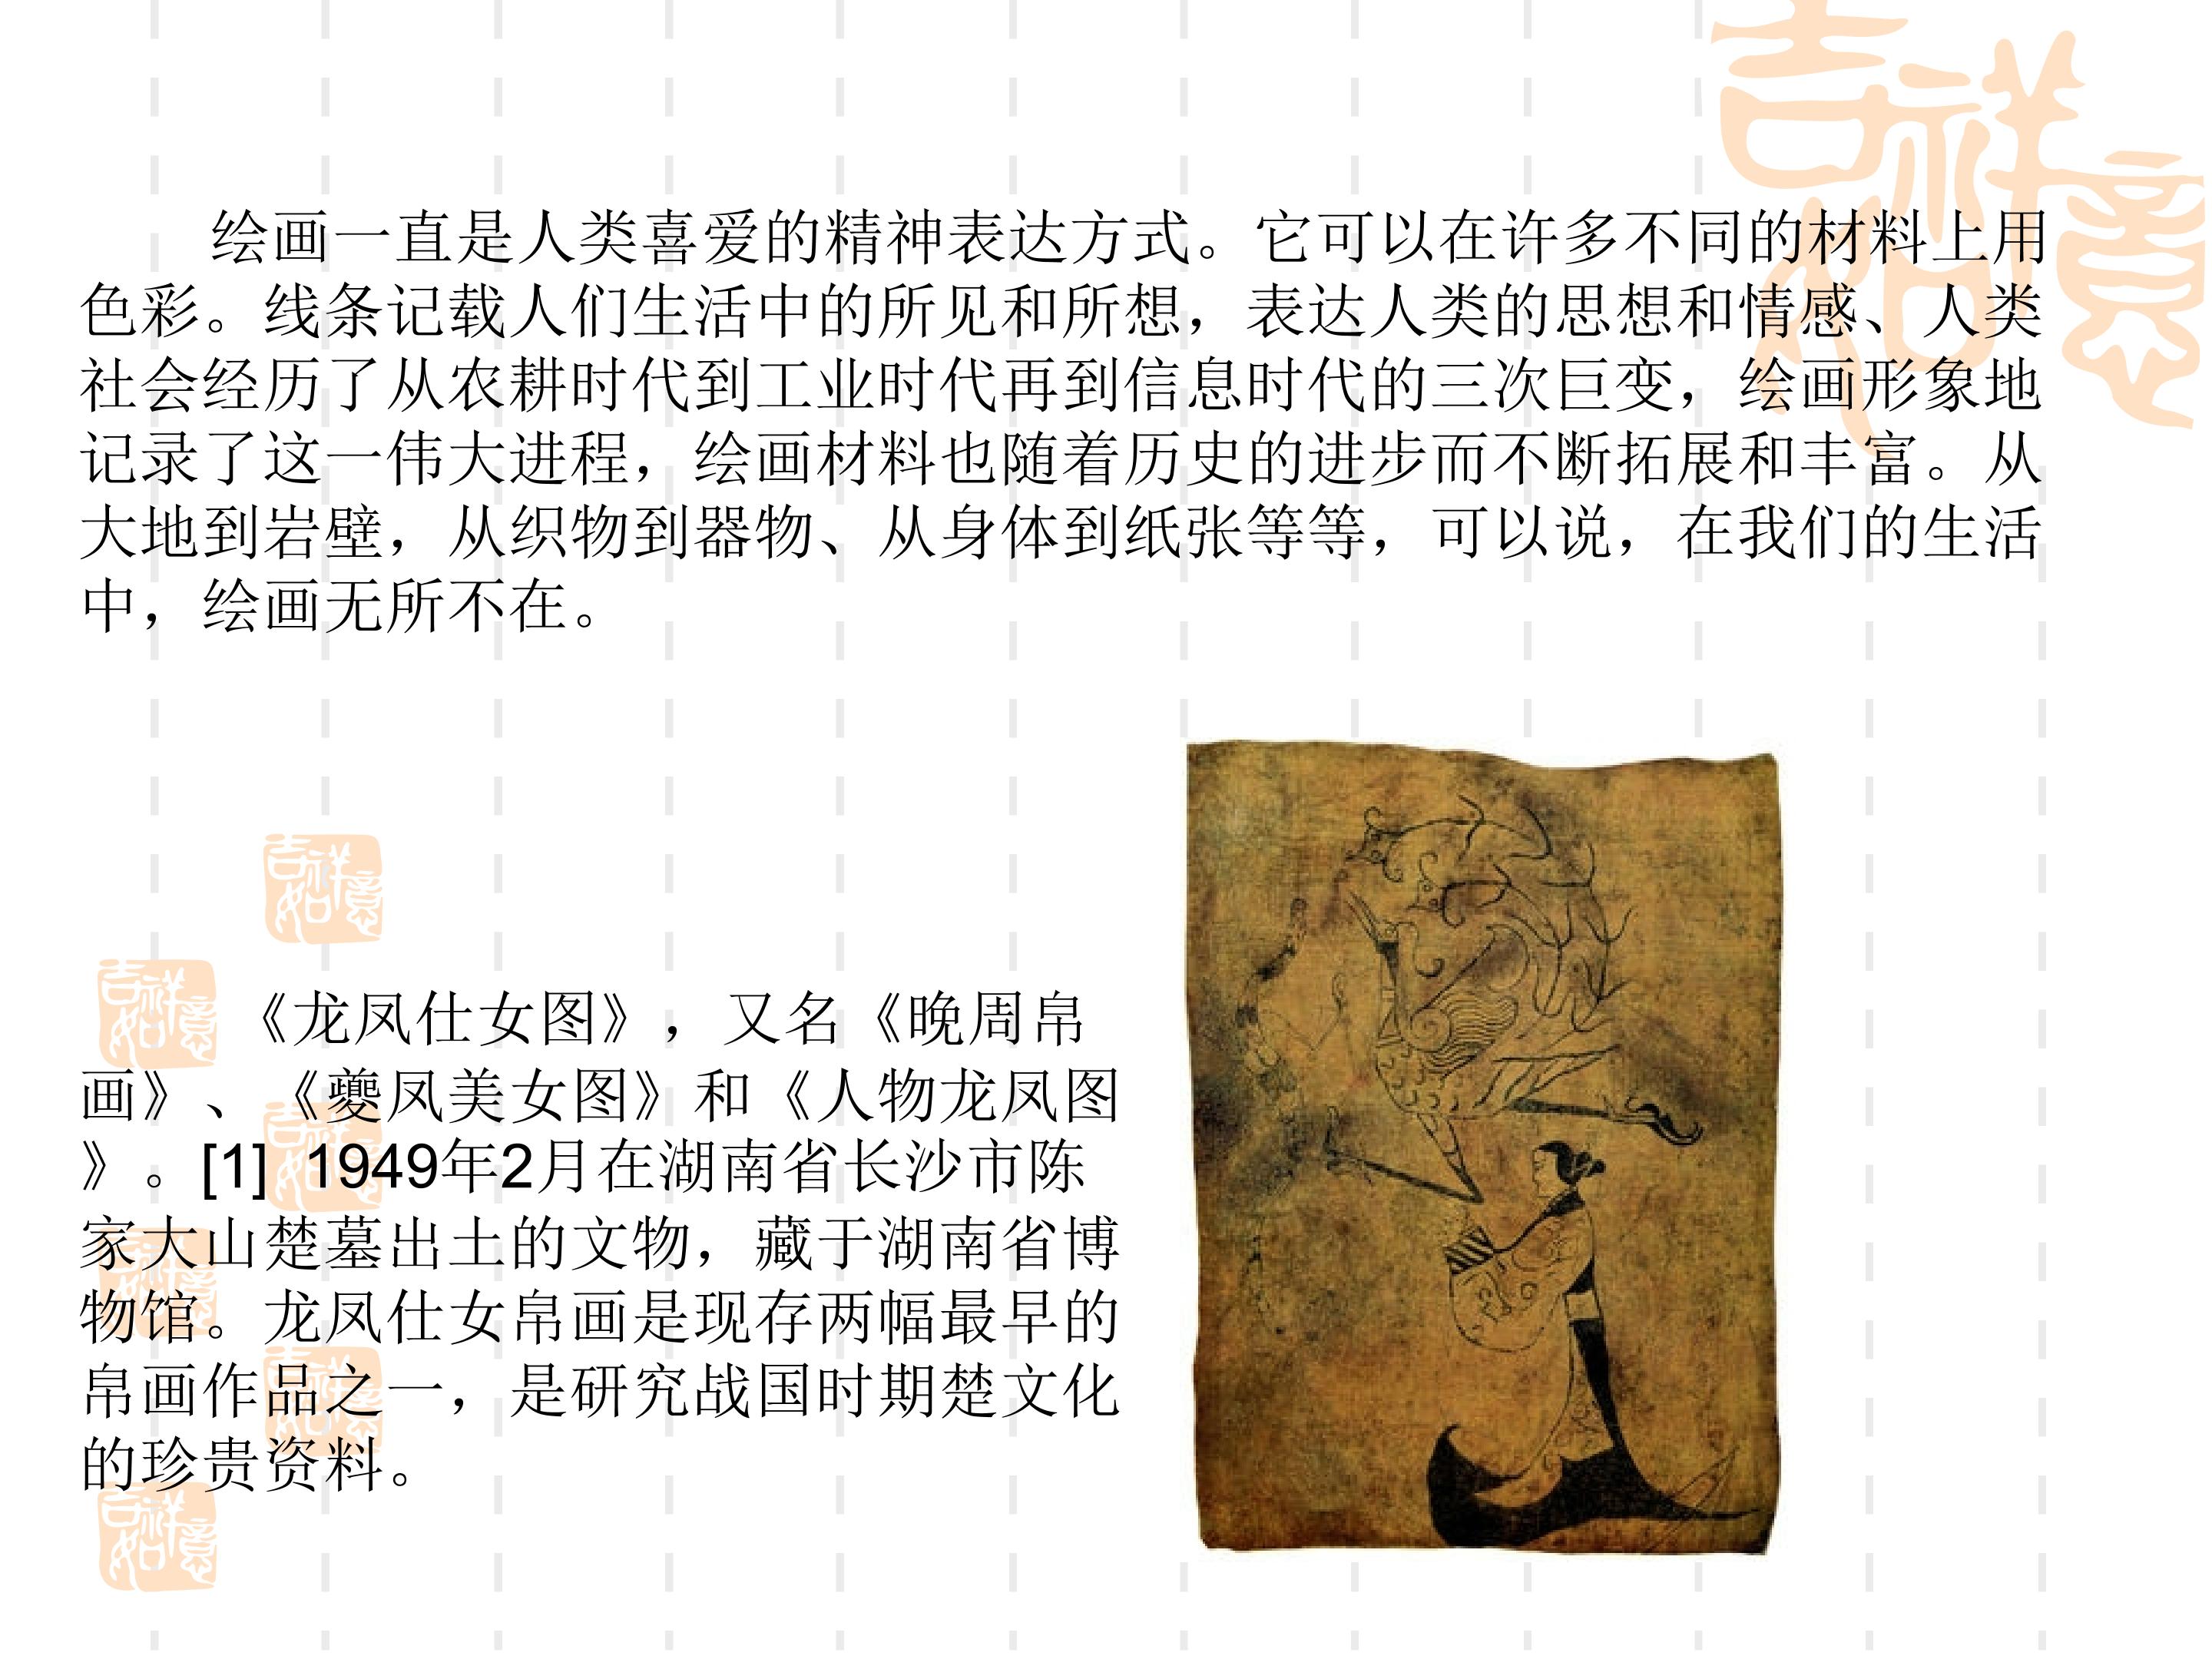 吉祥如意
绘画一直是人类喜爱的精神表达方式。它可以在许多不同的材料上用
色彩。线条记载人们生活中的所见和所想，表达人类的思想和情感、人类
社会经历了从农耕时代到工业时代再到信息时代的三次巨变，绘画形象地
记录了这一伟大进程，绘画材料也随着历史的进步而不断拓展和丰富。从
大地到岩壁，从织物到器物、从身体到纸张等等，可以说，在我们的生活
中，绘画无所不在。
吉祥如意
吉祥如意
《龙凤仕女图》，又名《晚周帛
画》、《夔凤美女图》和《人物龙凤图
》。[1] 1949年2月在湖南省长沙市陈
家大山楚墓出土的文物，藏于湖南省博
物馆。龙凤仕女帛画是现存两幅最早的
帛画作品之一，是研究战国时期楚文化
的珍贵资料。
吉祥如意
吉祥如意
吉祥如意
吉祥如意